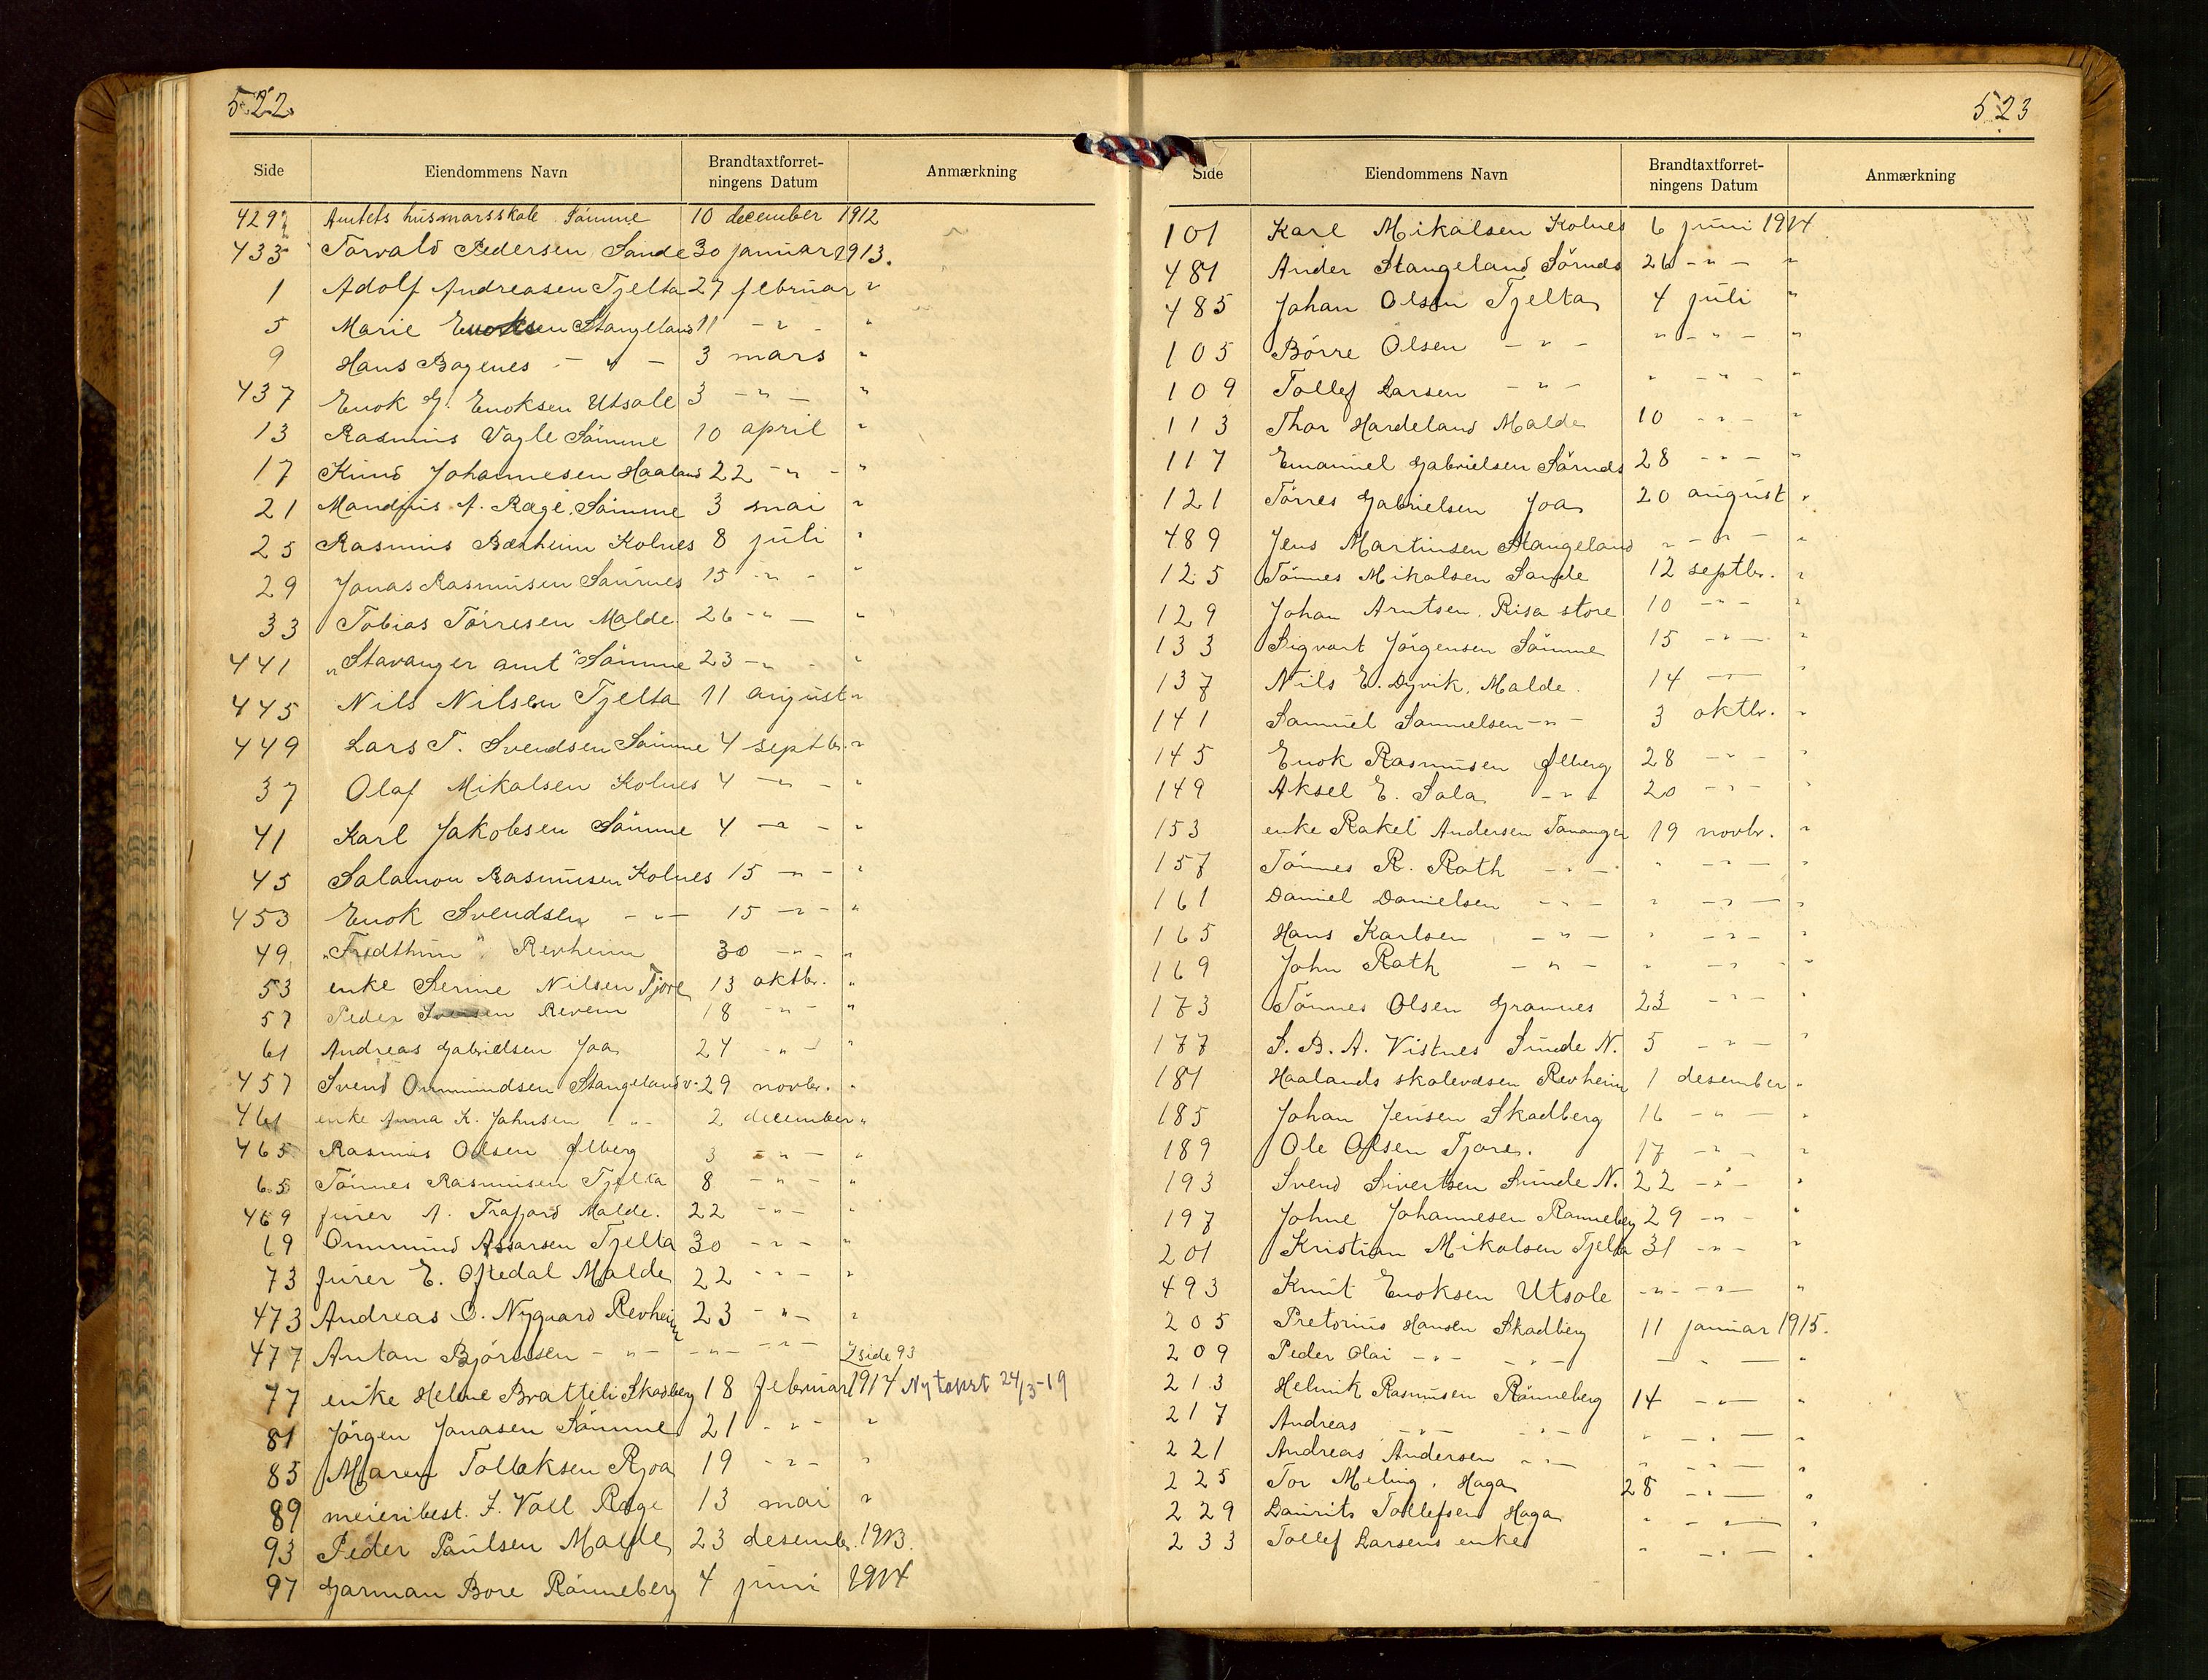 522
Side Eiendommens Navn Brandtaxtforret- Anmærkning
ningens Datum
429½ Amtets husmorsskole Sømme 10 december 1912
433 Torvald Pedersen Sande 30 januar 1913.
1 Adolf Andreasen Tjelta 27 februar "
5 Marie Enoksen Stangeland 11 - " - "
9 Hans Bogenes - " - 3 mars "
437 Enok G. Enoksen Utsole 3 - " - "
13 Rasmus Vagle Sømme 10 april "
17 Knud Johannesen Haaland 22 - " - "
21 Mandius A. Rege. Sømme 3 mai "
25 Rasmus Bærheim Kolnes 8 juli "
29 Jonas Rasmusen Sørnes 15 - " - "
33 Tobias Tørresen Malde 26 - " - "
441 "Stavanger amt" Sømme 23 - " - "
445 Nils Nilsen Tjelta 11 august "
449 Lars T. Svendsen Sømme 4 septbr. "
37 Olaf Mikalsen Kolnes 4 - " - "
41 Karl Jakobsen Sømme 4 - " - "
45 Salamon Rasmusen Kolnes 15 - " - "
453 Enok Svendsen - " - 15 - " - "
49 "Fredthun" Revheim 30 - " - "
53 enke Serine Nilsen Tjore 13 oktbr. "
57 Peder Revem 18 " - "
61 Andreas Gabrielsen Joa 24 - " - "
457 Svend Ommundsen Stangeland v. 29 novbr. "
461 enke Anna K. Johnsen " - 2 december "
465 Rasmus Olsen Ølberg 3 - " - "
65 Tønnes Rasmusen Tjelta 8 - " - "
469 furer A. Trafjord Malde. 22 - " - "
69 Ommund Assarsen Tjelta 30 - " - "
73 furer E. Oftedal Malde 22 - " - "
473 Andreas O. Nygaard Revheim 23 - " - "
477 Anton Bjørnsen - " - - " - - " - Z side 93
77 enke Helene Bratteli Skadberg 18 februar 1914 Ny takst 24/3-19
81 Jørgen Jonasen Sømme 21 - " - "
85 Maren Tollaksen Rjoa 19 - " - "
89 meieribest. F. Voll Rege 13 mai "
93 Peder Paulsen Malde 23 desembr. 1913.
97 Garman Bore Rønneberg 4 juni 1914
523
Side Eiendommens Navn Brandtaxtforret- Anmærkning
ningens Datum
101 Karl Mikalsen Kolnes 6 juni 1914
481 Ander Stangeland Sørnes 26 - " - "
485 Johan Olsen Tjelta 4 juli "
105 Børre Olsen - " - " - " - "
109 Tollef Larsen - " - " - " - "
113 Thor Hardeland Malde 10 - " - "
117 Emanuel Gabrielsen Sørnes 28 - " - "
121 Tørres Gabrielsen Joa 20 august "
489 Jens Martinsen Stangeland " - " - "
125 Tønnes Mikalsen Sande 12 septbr. "
129 Johan Arntsen. Risa store 10 - " - "
133 Sigvart Jørgensen Sømme 15 - " - "
137 Nils E. Dyvik, Malde. 14 - " - "
141 Samuel Samuelsen - " - 3 oktbr. "
145 Enok Rasmusen Ølberg 28 - " - "
149 Aksel E. Sola - " - 20 - " - "
153 enke Rakel Andersen Tananger 19 novbr. "
157 Tønnes R. Roth - " - " - " - "
161 Daniel Danielsen - " - " - " - "
165 Hans Karlsen - " - " - " - "
169 John Roth - " - " - " - "
173 Tønnes Olsen Grannes 23 - " - "
177 S. B. A. Vistnes Sunde N. 5 - " - "
181 Haalands skolevæsen Revheim 1 desember "
185 Johan Jensen Skadberg 16 - " - "
189 Ole Olsen Tjore. 17 - " - "
193 Svend Sivertsen Sunde N. 22 - " - "
197 Johne Johannesen Rønneberg 29 - " - "
201 Kristian Mikalsen Tjelta 31 - " - "
493 Knut Enoksen Utsole - " - - " - "
205 Pretorius Hansen Skadberg 11 januar 1915.
209 Peder Olai - " - - " - — " — "
213 Helmik Rasmusen Rønneberg 14 - " - "
217 Andreas - " - - " - " - " - "
221 Andreas Andersen - " - " - " - "
225 Tor Meling, Haga 28 - " - "
229 Laurits Tollefsen Haga " - " - "
233 Tollef Larsens enke " - " - "